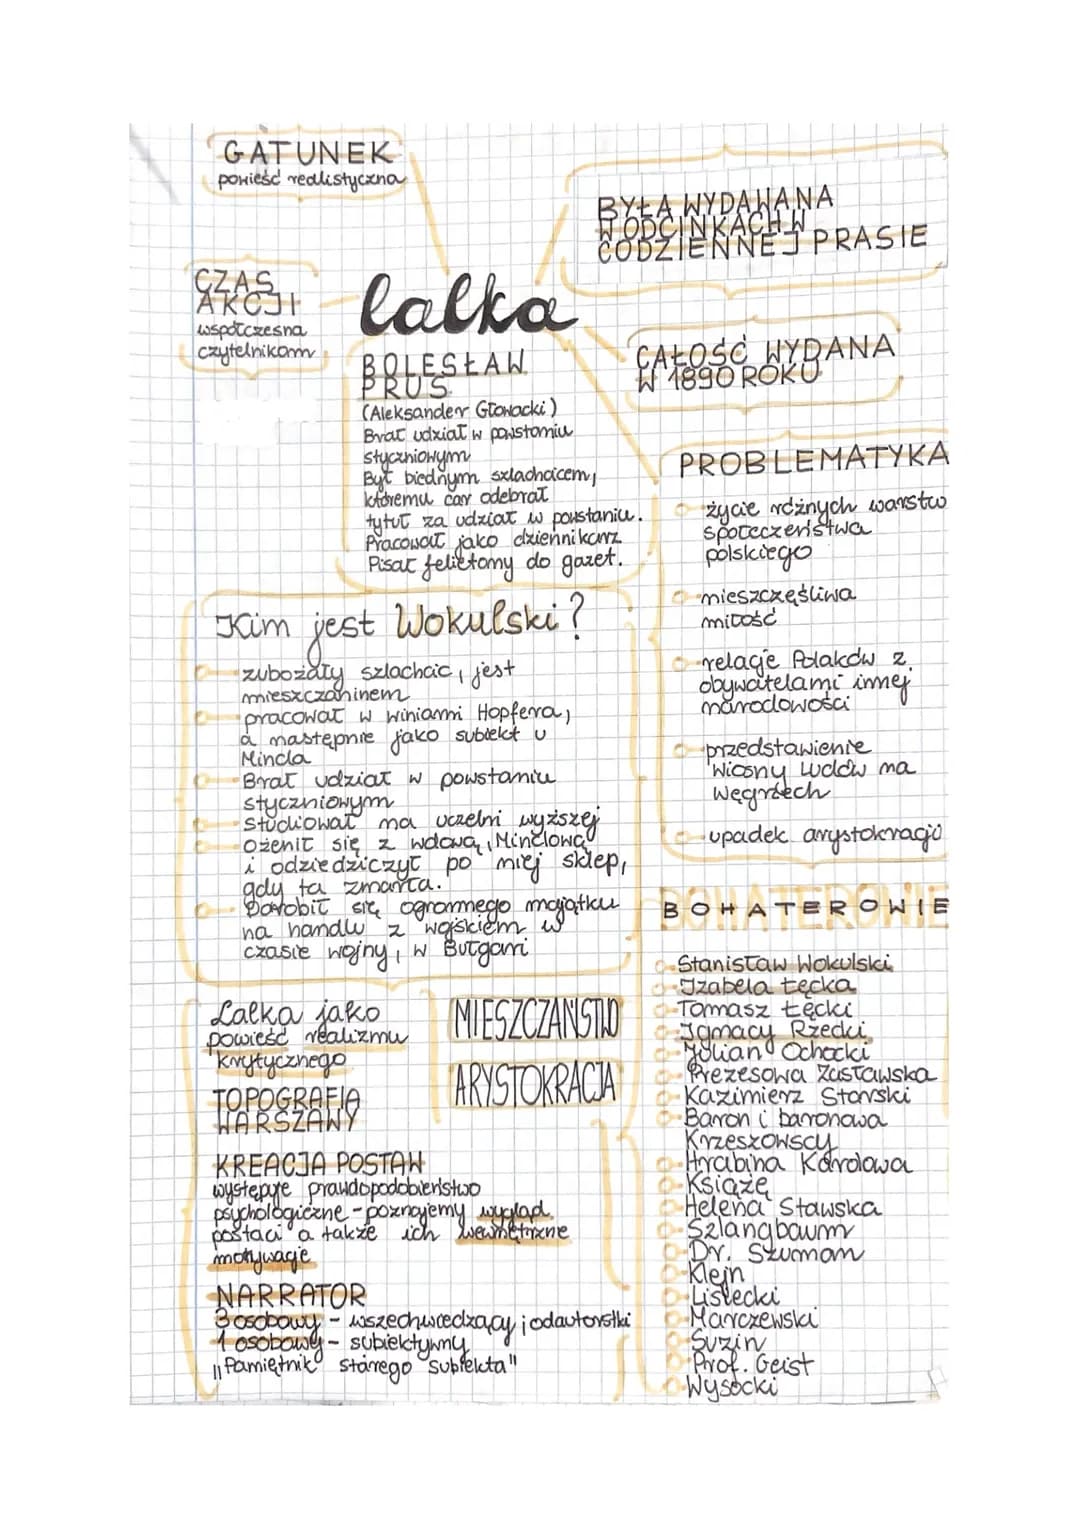 GATUNEK
powieść realistyczna
BYŁA WYDAWANA
W ODCINKACH W
CODZIENNEJ PRASIE
CZAS
AKCJI
współczesna
czytelnikom
lalka
BOLESŁAW
PRUS
(Aleksander Głowacki)
Brał udział w powstaniu
styczniowym
Był biednym szlachcicem,
któremu car odebrał
tytuł za udział w powstaniu.
Pracował jako dziennikarz
Pisał felietony do gazet.
CAŁOŚĆ WYDANA
W 1890 ROKU
PROBLEMATYKA
życie różnych warstw
społeczeństwa
polskiego
nieszczęśliwa
miłość
relacje Polaków z
obywatelami innej
narodowości
przedstawienie
Wiosny Ludów na
Węgrzech
upadek arystokracji
Kim jest Wokulski?
zubożały szlachcic, jest
mieszczaninem
pracował w winiarni Hopfera,
a następnie jako subiekt u
Mincla
Brał udział w powstaniu
styczniowym
Studiował na uczelni wyższej
Ożenił się z wdową, Minclową
i odziedziczył po niej sklep,
gdy ta zmarła.
Dorobił się ogromnego majątku
na handlu z wojskiem w
czasie wojny, w Bułgarii
BOHATEROWIE
Stanisław Wokulski
Izabela Łęcka
Tomasz Łęcki
Ignacy Rzecki
Julian Ochocki
Prezesowa Zasławska
Kazimierz Starski
Baron i baronowa
Krzeszowscy
Hrabina Karolowa
Książę
Helena Stawska
Szlangbaum
Dr. Szuman
Klejn
Lisiecki
Marczewski
Suzin
Prof. Geist
Wysocki
Lalka jako
powieść realizmu
krytycznego
TOPOGRAFIA
WARSZAWY
MIESZCZAŃSTWO
ARYSTOKRACJA
KREACJA POSTAW
występuje prawdopodobieństwo
psychologiczne - poznajemy wygląd
postaci a także ich wewnętrzne
motywacje
NARRATOR
3 osobowy - wszechwiedzący i odautorski
1 osobowy - subiektywny
"Pamiętnik starego subiekta"